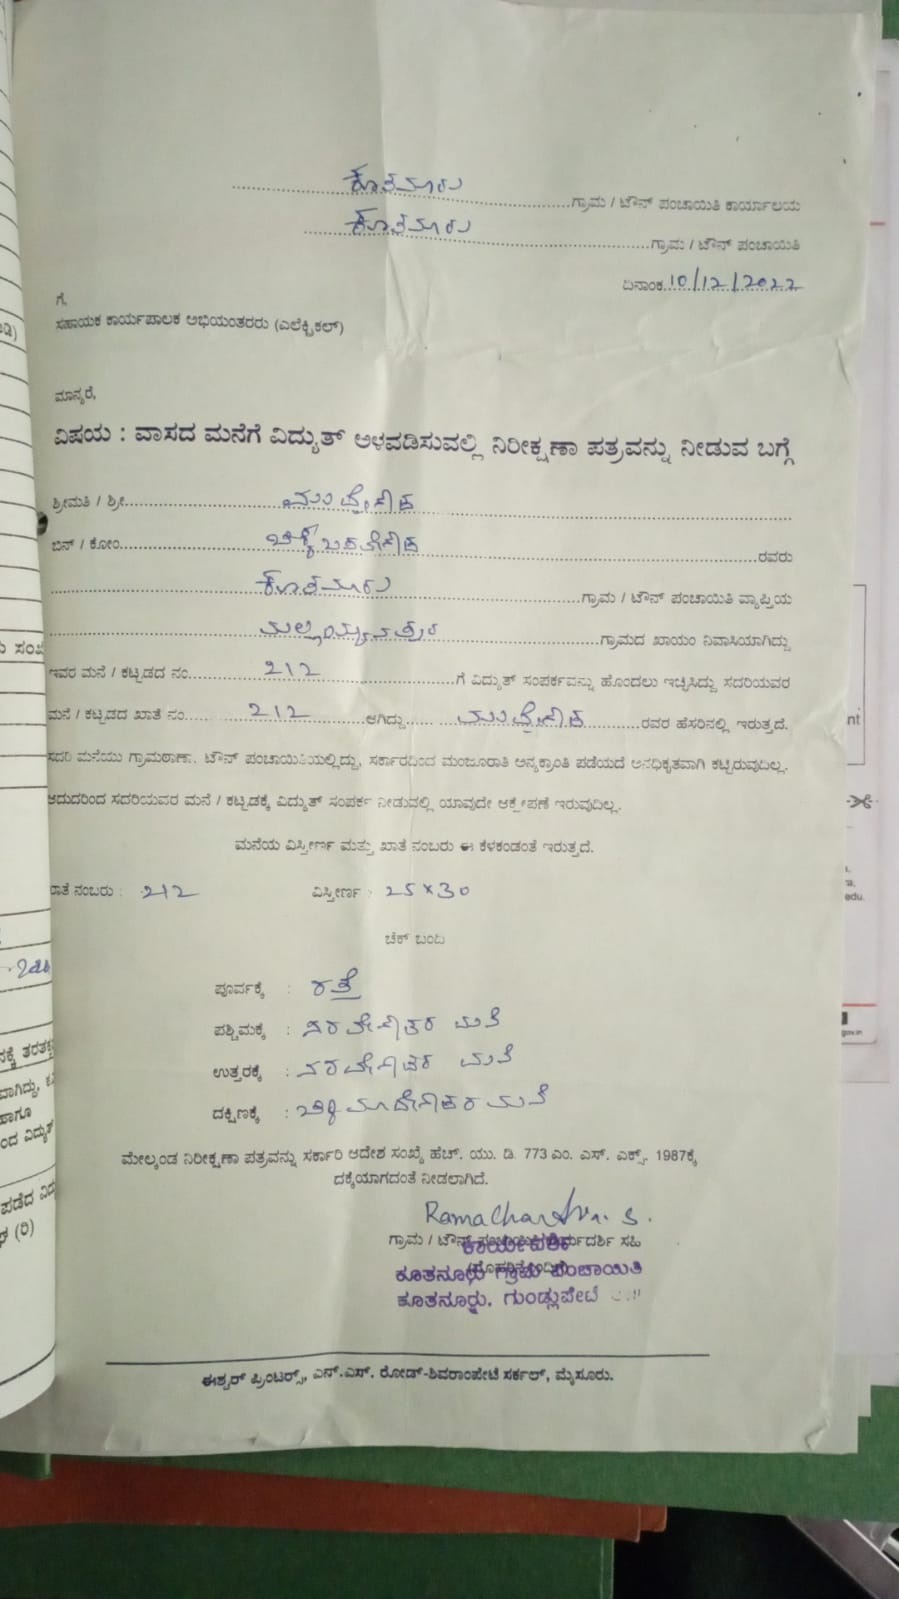 ಕೂತನೂರು ಗ್ರಾಮ / ಟೌನ್ ಪಂಚಾಯಿತಿ ಕಾರ್ಯಾಲಯ
ಕೂತನೂರು ಗ್ರಾಮ / ಟೌನ್ ಪಂಚಾಯಿತಿ
ದಿನಾಂಕ 10/12/2022
ಗೆ,
ಸಹಾಯಕ ಕಾರ್ಯಪಾಲಕ ಅಭಿಯಂತರರು (ಎಲೆಕ್ಟ್ರಿಕಲ್)
ಮಾನ್ಯರೆ,
ವಿಷಯ : ವಾಸದ ಮನೆಗೆ ವಿದ್ಯುತ್ ಅಳವಡಿಸುವಲ್ಲಿ ನಿರೀಕ್ಷಣಾ ಪತ್ರವನ್ನು ನೀಡುವ ಬಗ್ಗೆ
ಶ್ರೀಮತಿ / ಶ್ರೀ
ಬಿನ್ / ಕೋಂ ರವರು
ಕೂತನೂರು ಗ್ರಾಮ / ಟೌನ್ ಪಂಚಾಯಿತಿ ವ್ಯಾಪ್ತಿಯ
ಗ್ರಾಮದ ಖಾಯಂ ನಿವಾಸಿಯಾಗಿದ್ದು
ಇವರ ಮನೆ / ಕಟ್ಟಡದ ನಂ. 212 ಗೆ ವಿದ್ಯುತ್ ಸಂಪರ್ಕವನ್ನು ಹೊಂದಲು ಇಚ್ಛಿಸಿದ್ದು ಸದರಿಯವರ
ಮನೆ / ಕಟ್ಟಡದ ಖಾತೆ ನಂ. 212 ಆಗಿದ್ದು ರವರ ಹೆಸರಿನಲ್ಲಿ ಇರುತ್ತದೆ.
ಸದರಿ ಮನೆಯು ಗ್ರಾಮಠಾಣಾ. ಟೌನ್ ಪಂಚಾಯಿತಿಯಲ್ಲಿದ್ದು, ಸರ್ಕಾರದಿಂದ ಮಂಜೂರಾತಿ ಅನ್ಯಕ್ರಾಂತಿ ಪಡೆಯದೆ ಅನಧಿಕೃತವಾಗಿ ಕಟ್ಟಿರುವುದಿಲ್ಲ.
ಆದುದರಿಂದ ಸದರಿಯವರ ಮನೆ / ಕಟ್ಟಡಕ್ಕೆ ವಿದ್ಯುತ್ ಸಂಪರ್ಕ ನೀಡುವಲ್ಲಿ ಯಾವುದೇ ಆಕ್ಷೇಪಣೆ ಇರುವುದಿಲ್ಲ.
ಮನೆಯ ವಿಸ್ತೀರ್ಣ ಮತ್ತು ಖಾತೆ ನಂಬರು ಈ ಕೆಳಕಂಡಂತೆ ಇರುತ್ತದೆ.
ಖಾತೆ ನಂಬರು : 212 ವಿಸ್ತೀರ್ಣ : 25×30
ಚೆಕ್ ಬಂದಿ
ಪೂರ್ವಕ್ಕೆ : ರಸ್ತೆ
ಪಶ್ಚಿಮಕ್ಕೆ : ಮನೆ
ಉತ್ತರಕ್ಕೆ : ಮನೆ
ದಕ್ಷಿಣಕ್ಕೆ : ಮನೆ
ಮೇಲ್ಕಂಡ ನಿರೀಕ್ಷಣಾ ಪತ್ರವನ್ನು ಸರ್ಕಾರಿ ಆದೇಶ ಸಂಖ್ಯೆ ಹೆಚ್. ಯು. ಡಿ. 773 ಎಂ. ಎಸ್. ಎಕ್ಸ್. 1987ಕ್ಕೆ
ದಕ್ಕೆಯಾಗದಂತೆ ನೀಡಲಾಗಿದೆ.
ಗ್ರಾಮ / ಟೌನ್ ಪಂಚಾಯಿತಿ ಕಾರ್ಯದರ್ಶಿ ಸಹಿ
ಕಾರ್ಯದರ್ಶಿ
ಕೂತನೂರು ಗ್ರಾಮ ಪಂಚಾಯಿತಿ
ಕೂತನೂರು, ಗುಂಡ್ಲುಪೇಟೆ
ಈಶ್ವರ್ ಪ್ರಿಂಟರ್ಸ್, ಎನ್.ಎಸ್. ರೋಡ್-ಶಿವರಾಂಪೇಟೆ ಸರ್ಕಲ್, ಮೈಸೂರು.